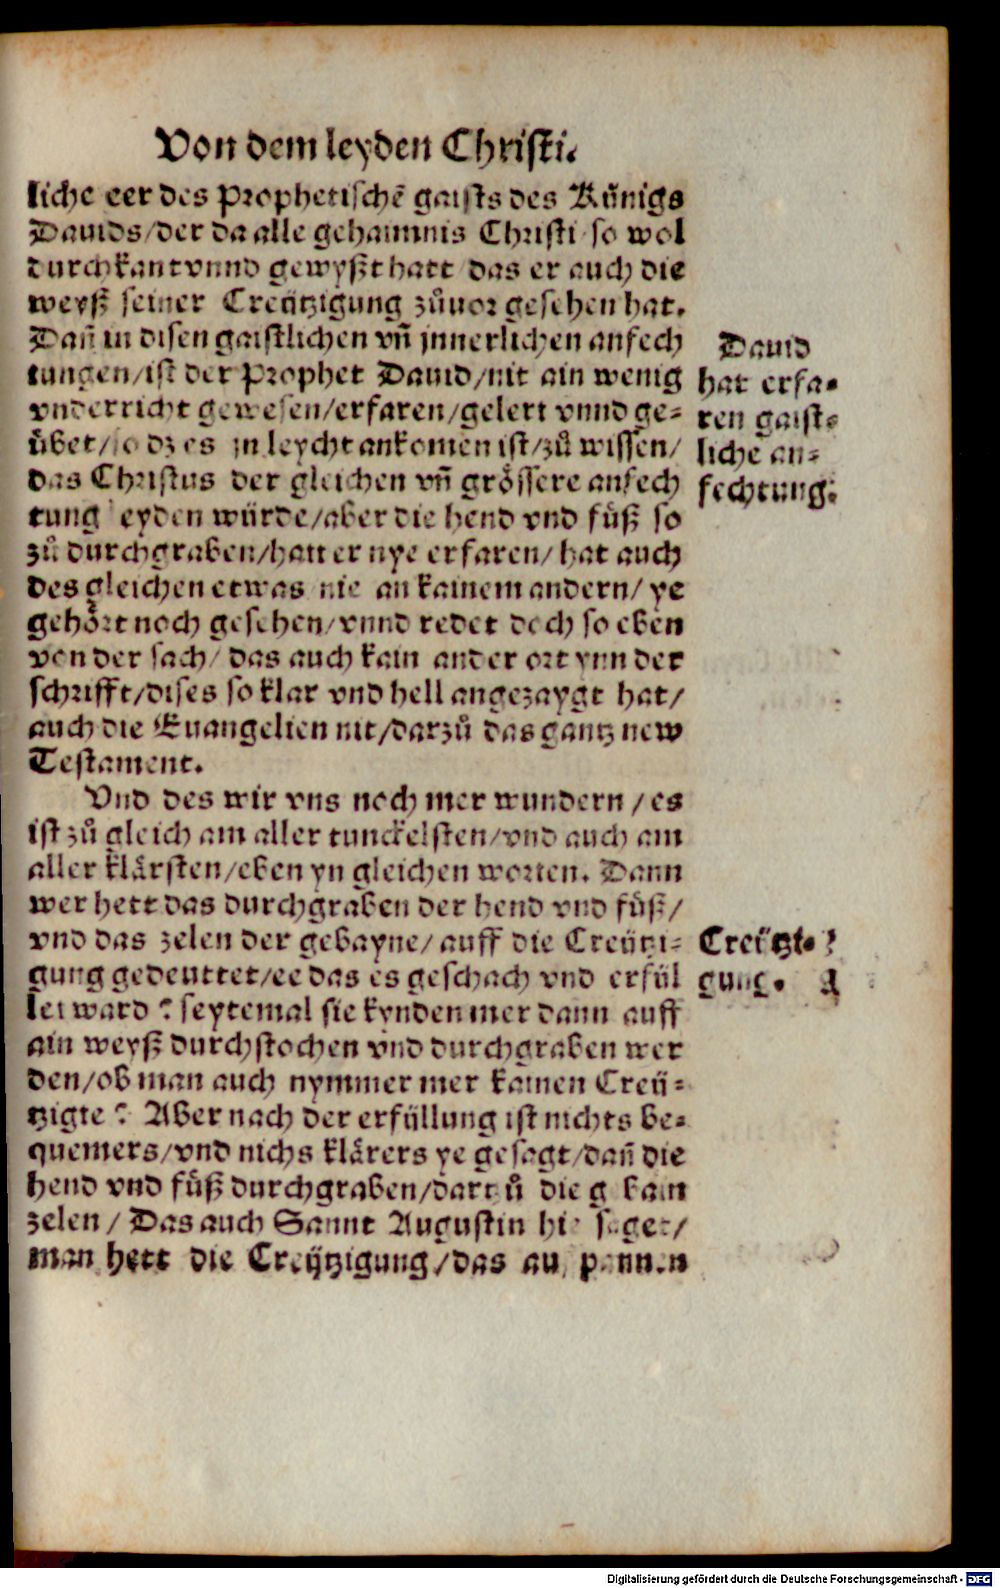 Von dem leyden Christi.
liche eer des Prophetischē gaists des Künigs
Dauids/der da alle gehaimnis Christi so wol
durchkant vnnd gewyßt hatt das er auch die
weyß seiner Creützigung zůuor gesehen hat.
Dañ in disen gaistlichen vñ jnnerlichen anfech
tungen/ist der Prophet Dauid/nit ain wenig
vnderricht gewesen/erfaren/gelert vnnd ge=
übet/so dz es jn leycht ankomen ist/zů wissen/
das Christus der gleichen vñ grössere anfech
tung leyden würde/aber die hend vnd füß so
zů durchgraben/hatt er nye erfaren/hat auch
des gleichen etwas nie an kainem andern/ye
gehört noch gesehen/vnnd redet doch so eben
von der sach/das auch kain ander ort ynn der
schrifft/dises so klar vnd hell angezaygt hat/
auch die Euangelien nit/darzů das gantz new
Testament.
Dauid
hat erfa=
ren gaist=
liche an=
fechtung.
Vnd des wir vns noch mer wundern/es
ist zů gleich am aller tunckelsten/vnd auch am
aller klärsten/eben yn gleichen worten. Dann
wer hett das durchgraben der hend vnd füß/
vnd das zelen der gebayne/auff die Creützi=
gung gedeuttet/ee das es geschach vnd erfül
let ward? seytemal sie kynden mer dann auff
ain weyß durchstochen vnd durchgraben wer
den/ob man auch nymmer mer kainen Creü=
tzigte? Aber nach der erfüllung ist nichts be=
quemers/vnd nichs klärers ye gesagt/dañ die
hend vnd füß durchgraben/darzů die gebain
zelen/Das auch Sannt Augustin hie saget/
man hett die Creÿtzigung/das
Creützi=
gung.
Digitalisierung gefördert durch die Deutsche Forschungsgemeinschaft - DFG